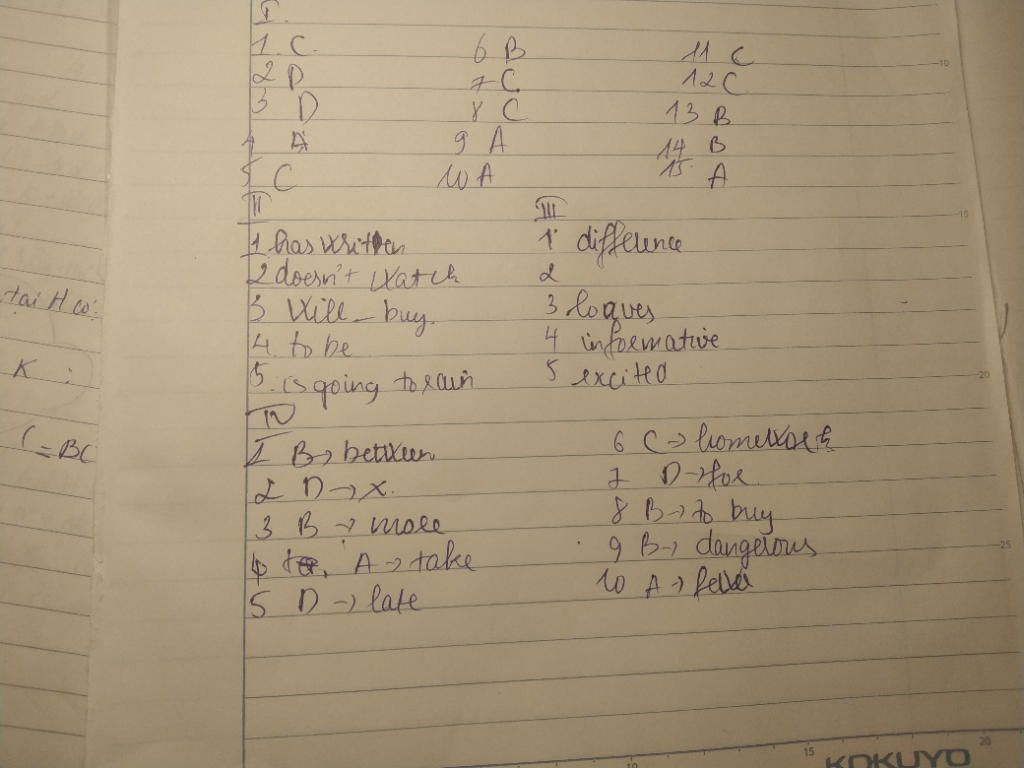 I.
1. C. 6 B 11 C
2 D 7 C 12 C
3 D 8 C 13 B
4 A 9 A 14 B
5 C 10 A 15. A
II III
1. has written 1. difference
2 doesn't watch 2
3 will - buy. 3
4. to be 4 informative
5. is going to rain 5 excited
IV
1 B → between 6 C → homework
2 D → x. 7 D → for
3 B → more 8 B → to buy
4 A → take 9 B → dangerous
5 D → late 10 A → fewer
tại H có:
K :
= BC
10
15
20
25
10 15 20
KOKUYO